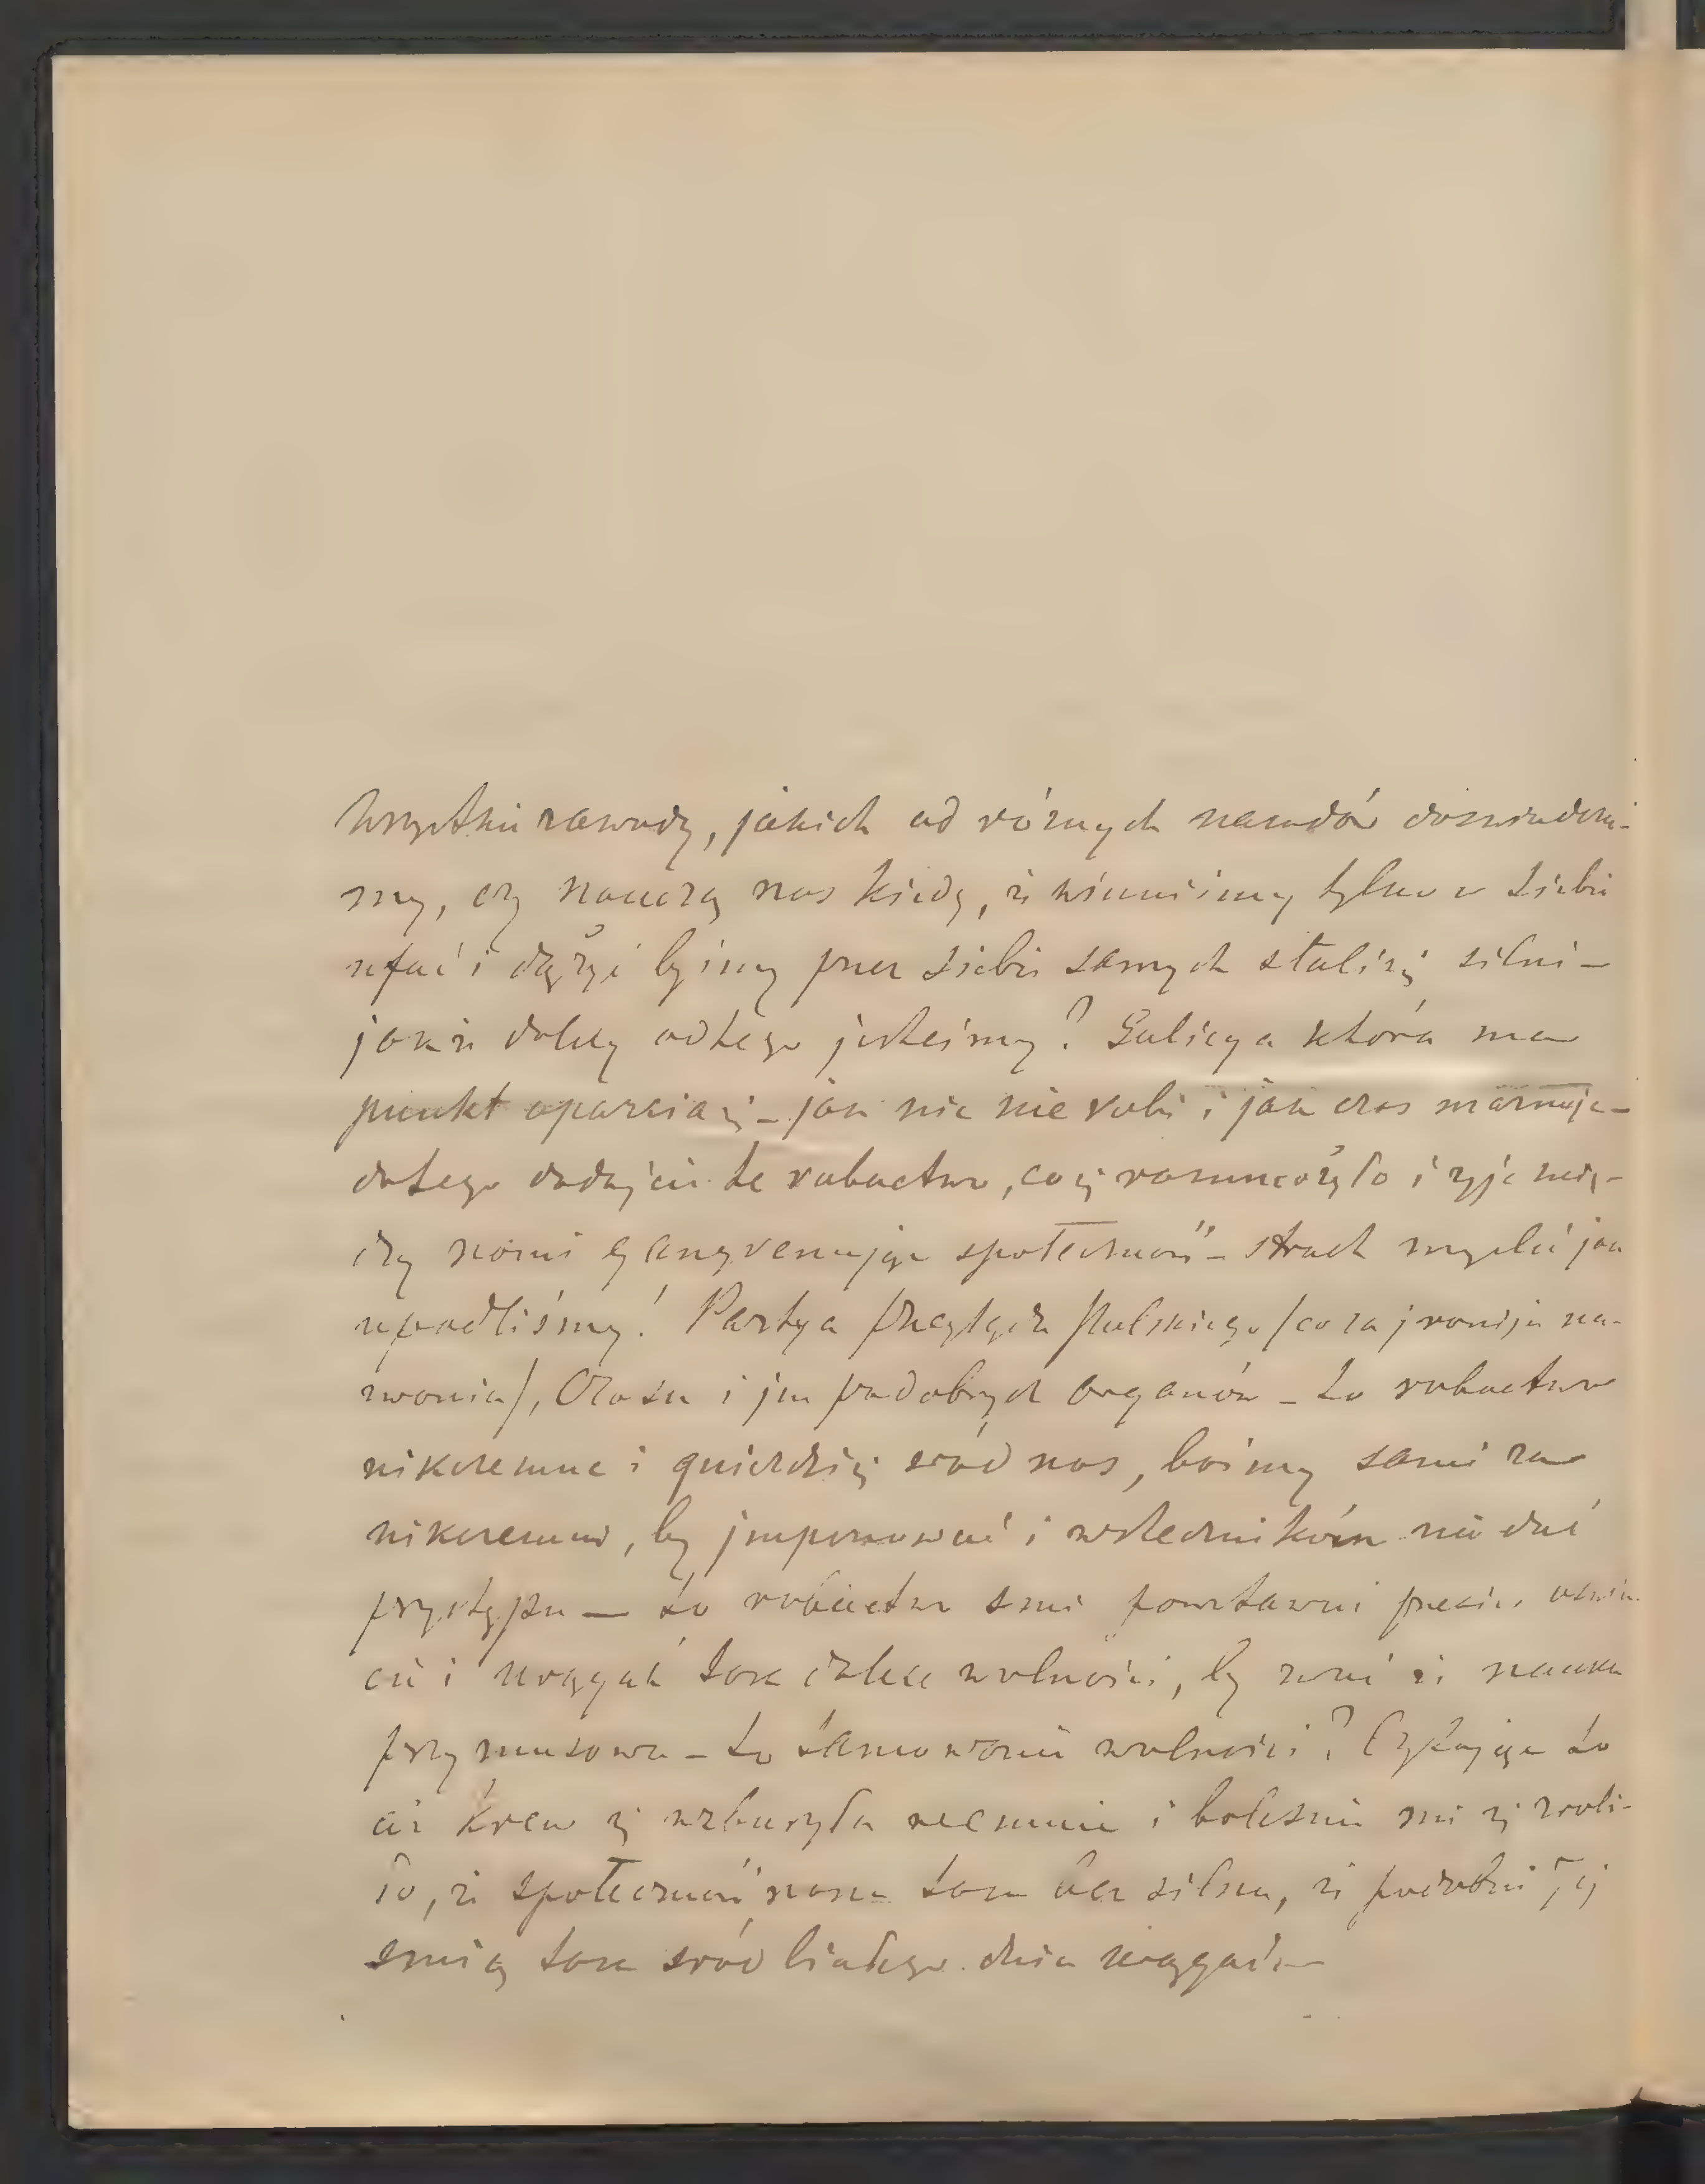 Wszystkie zawody, jakich od różnych narodów doświadczali-
my, czy nauczą nas kiedy, iż winniśmy tylko w siebie
ufać i dążyć byśmy przez siebie samych stali się silni –
jakże dalecy od tego jesteśmy? Galicya która ma
punkt oparcia się – jak nic nie robi i jak czas marnuje –
do tego dodajcie te robactwo, co się rozmnożyło i żyje mię-
dzy nami gangrenując społeczność – strach myśleć jak
upadliśmy! Partya Przeglądu Polskiego /co za ironija na-
zwania/, Czasu i im podobnych organów – to robactwo
nikczemne i gnieździ się śród nas, bośmy sami za
nikczemni, by imponować i wstecznikóm nie dać
przystępu – to robactwo śmie powstawać przeciw oświa
cie i urągać tak dalece wolności, by zwać iż nauka
przymusowa – to tamowanie wolności? Czytając to
aż krew się wzburzyła we mnie i boleśnie mi się zrobi-
ło, iż społeczność nasza tak bez silna, iż podobni łżą i
śmią tak śród białego dnia urągać –